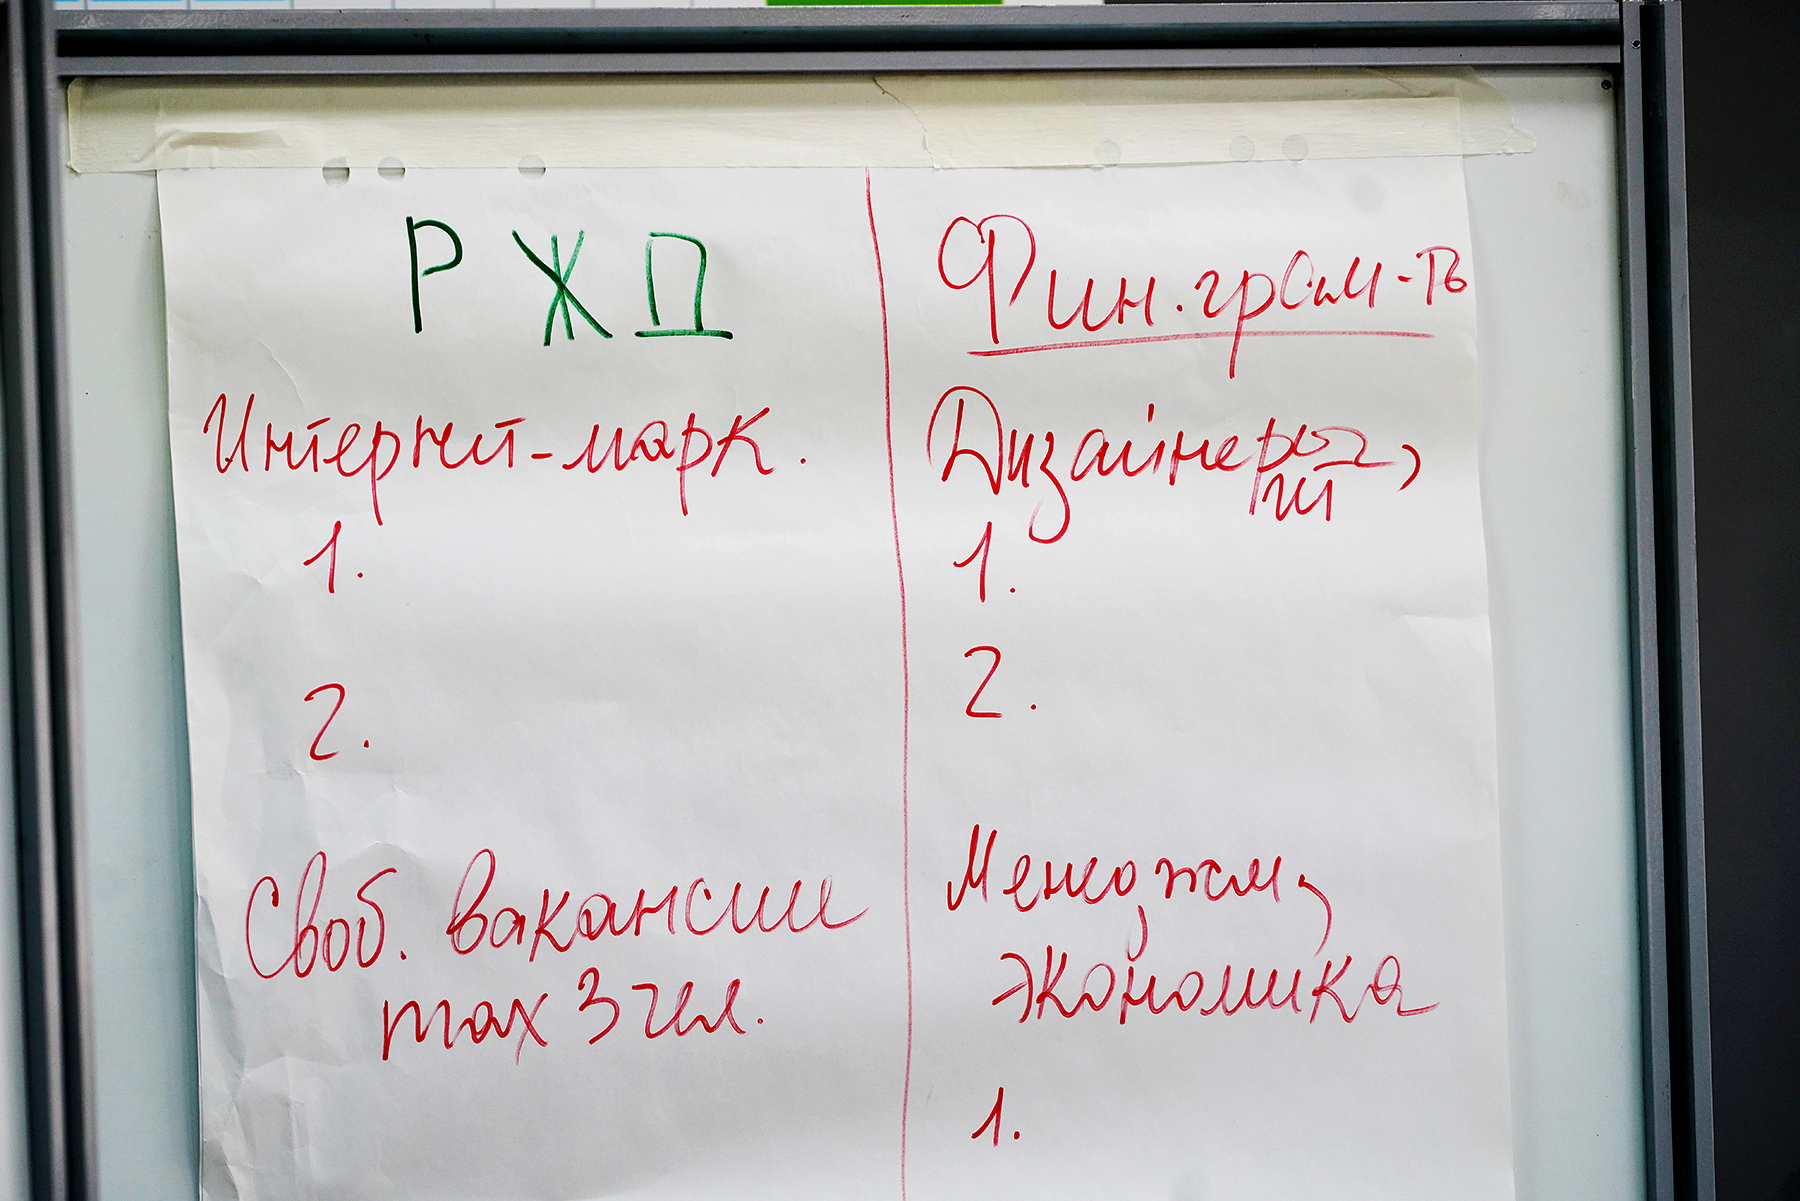 РЖД
Интернет-марк.
1.
2.
Своб. вакансии
max 3 чел.
Фин.грам-ть
Дизайнеров,
ИТ
1.
2.
Менеджм,
экономика
1.